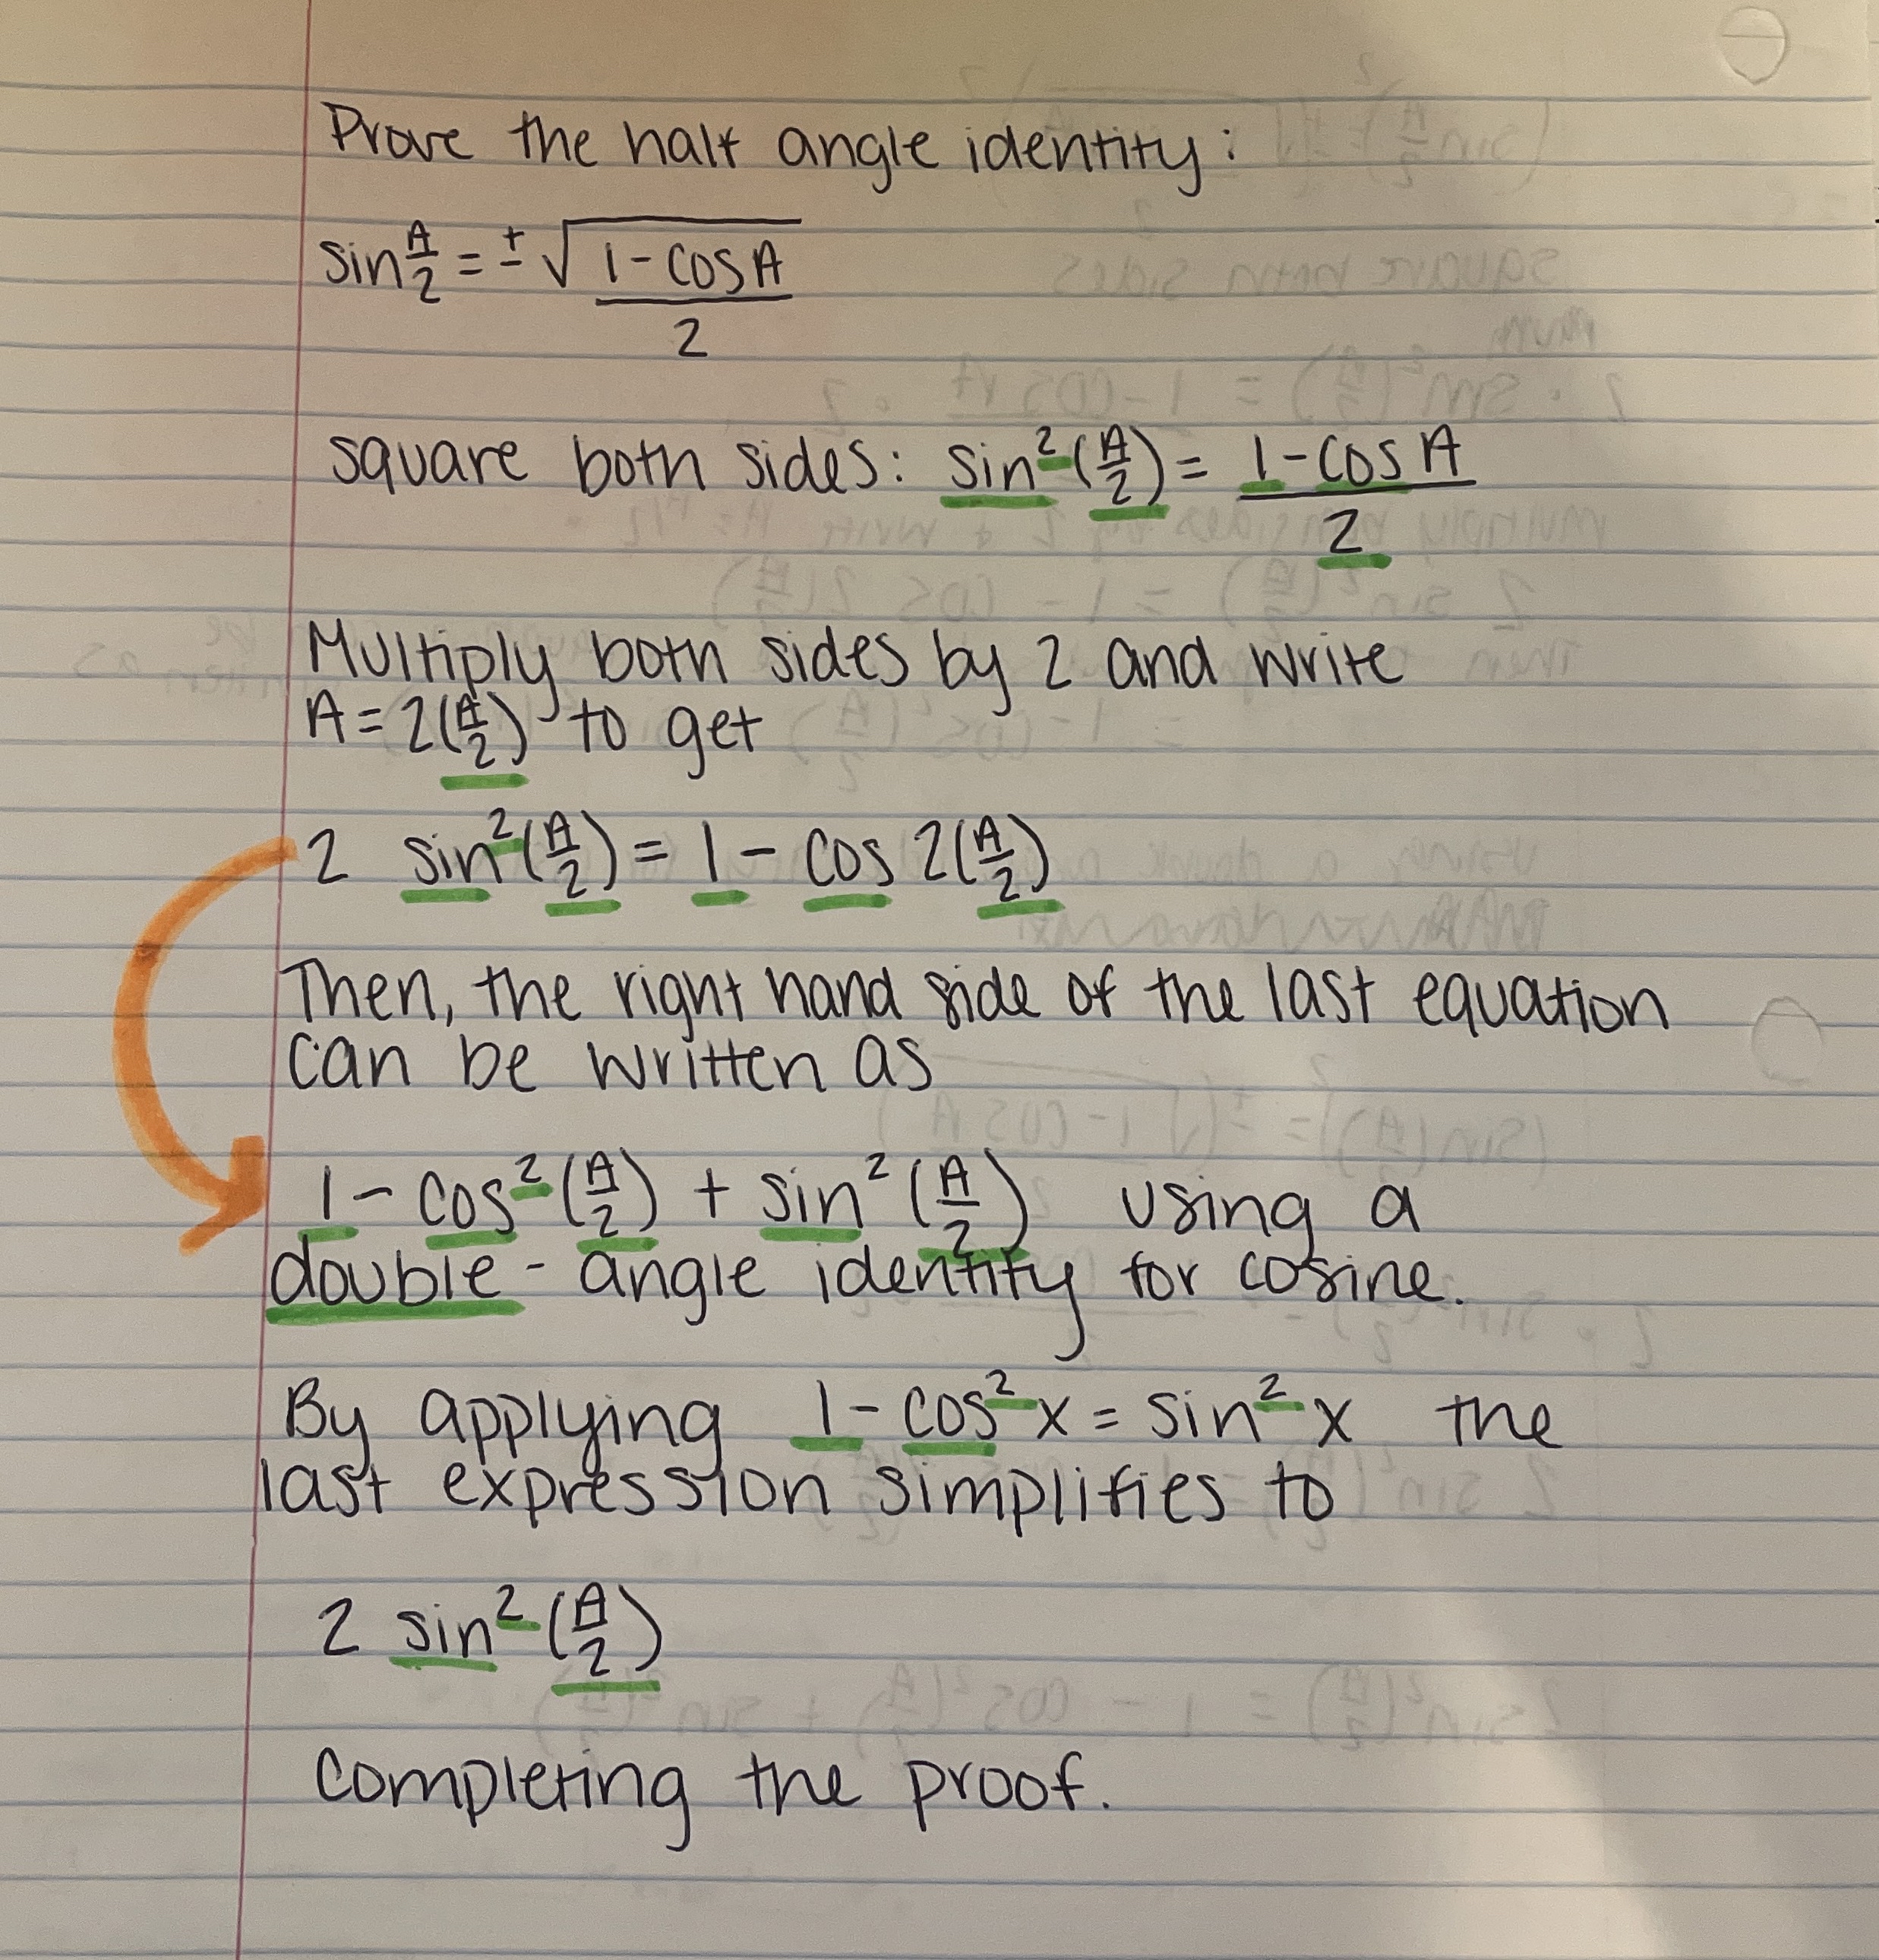 Prove the half angle identity:
sin A/2 = ± √(1 - cos A)/2
square both sides: sin²(A/2) = (1 - cos A)/2
Multiply both sides by 2 and write
A = 2(A/2) to get
2 sin²(A/2) = 1 - cos 2(A/2)
Then, the right hand side of the last equation
can be written as
1 - cos²(A/2) + sin²(A/2) using a
double - angle identity for cosine.
By applying 1 - cos²x = sin²x the
last expression simplifies to
2 sin²(A/2)
completing the proof.